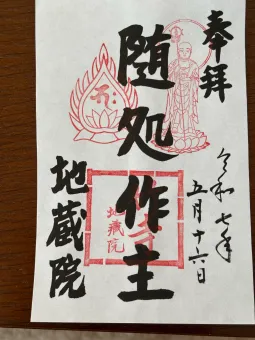 奉拝
令和七年
五月十六日
随処作主
地蔵院
地蔵院